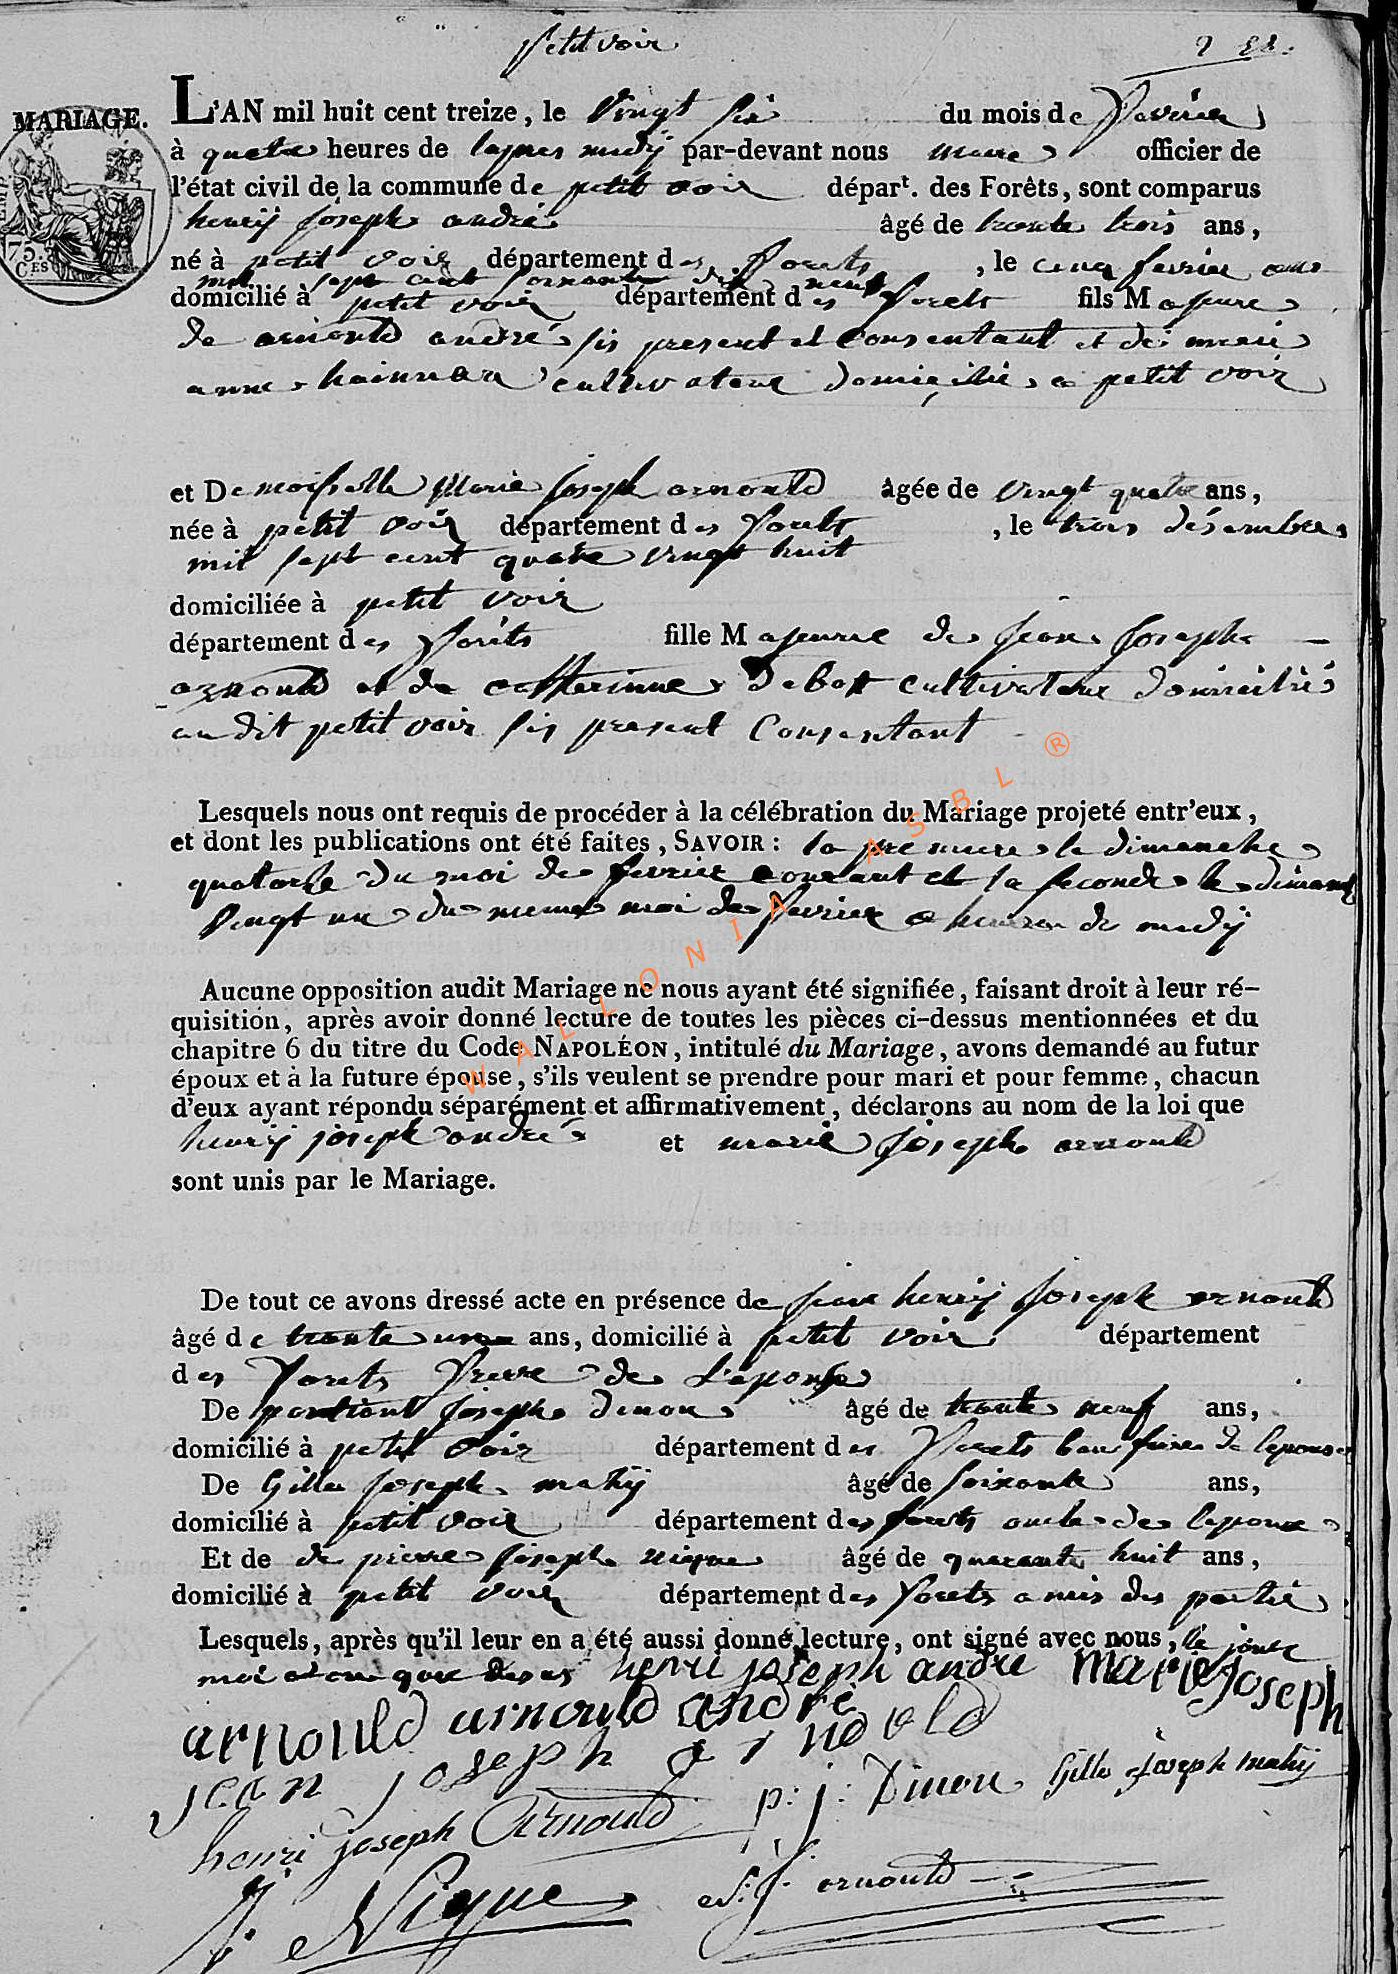 petit voir
MARIAGE.
L'AN mil huit cent treize, le vingt six du mois de fevrier
à quatre heures de lapres midÿ par-devant nous maire officier de
l'état civil de la commune de petit voir départ. des Forêts, sont comparus
henrÿ joseph andré âgé de trente trois ans,
né à petit voir département des forets, le cinq fevrier
mil sept cent soixante dix neuf
domicilié à petit voir département des forets fils Majeure
de arnould andré sis present et consentant et de marie
anne hainaux cultivateur domicilié a petit voir
et Demoiselle Marie joseph arnould âgée de vingt quatre ans,
née à petit voir département des forets, le trois désembre
mil sept cent quatre vingt huit
domiciliée à petit voir
département des forêts fille Majeure de jean joseph
arnould et de catherinne cultivateur domicilié
au dit petit voir sis present consentant
Lesquels nous ont requis de procéder à la célébration du Mariage projeté entr'eux,
et dont les publications ont été faites, SAVOIR : la premiere le dimanche
quatorse du moi de fevrier courant et la seconde le dimanch
vingt un du meme moi de fevrier a heures de midÿ
Aucune opposition audit Mariage ne nous ayant été signifiée, faisant droit à leur ré-
quisition, après avoir donné lecture de toutes les pièces ci-dessus mentionnées et du
chapitre 6 du titre du Code NAPOLÉON, intitulé du Mariage, avons demandé au futur
époux et à la future épouse, s'ils veulent se prendre pour mari et pour femme, chacun
d'eux ayant répondu séparément et affirmativement, déclarons au nom de la loi que
henrÿ joseph andré et marie joseph arnould
sont unis par le Mariage.
De tout ce avons dressé acte en présence de jean henrÿ joseph arnould
âgé de trente une ans, domicilié à petit voir département
des forets frere de l'epouse
De joseph dinon âgé de trente neuf ans,
domicilié à petit voir département des forets beau frere de lepouse
De Gille joseph mahÿ âgé de soixante ans,
domicilié à petit voir département des forets oncle de lepouse
Et de de pierre joseph nique âgé de quarante huit ans,
domicilié à petit voir département des forets amis des partie
Lesquels, après qu'il leur en a été aussi donné lecture, ont signé avec nous, le jour
moi et an que desus henri joseph andre marie joseph
arnould arnould andré
jean joseph arnould
p: j: Dinon Gille joseph mahÿ
henri joseph Arnould
Nique arnould
WALLONIA ASBL ®